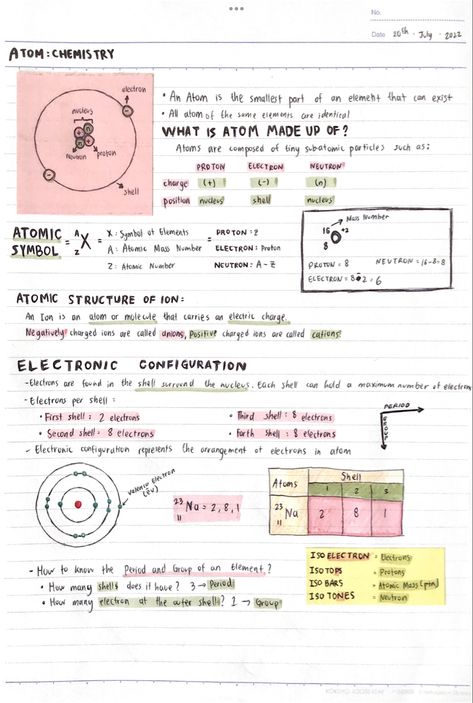 No.
Date 20th · July · 2022
ATOM: CHEMISTRY
electron
nucleus
neutron
proton
shell
• An Atom is the smallest part of an element that can exist
• All atom of the same elements are identical
WHAT IS ATOM MADE UP OF?
Atoms are composed of tiny subatomic particles such as:
PROTON ELECTRON NEUTRON
charge (+) (-) (n)
position nucleus shell nucleus
ATOMIC SYMBOL = A Z X = X: Symbol of Elements = PROTON: Z
A: Atomic Mass Number ELECTRON: Proton
Z: Atomic Number NEUTRON: A-Z
Mass Number
16 +2
8
PROTON = 8 NEUTRON = 16-8=8
ELECTRON = 8-2=6
ATOMIC STRUCTURE OF ION:
An Ion is an atom or molecule that carries an electric charge.
Negatively charged ions are called anions, Positive charged ions are called cations.
ELECTRONIC CONFIGURATION
- Electrons are found in the shell surround the nucleus. Each shell can hold a maximum number of electron
- Electrons per shell:
• First shell: 2 electrons
• Third shell: 8 electrons
• Second shell: 8 electrons
• Forth shell: 8 electrons
PERIOD
GROUP
- Electronic configuration represents the arrangement of electrons in atom
Valence Electron
(Ev)
23 11 Na = 2, 8, 1
Atoms Shell
1 2 3
23 11 Na 2 8 1
- How to know the Period and Group of an Element?
• How many shells does it have? 3 → Period
• How many electron at the outer shell? 1 → Group
ISO ELECTRON = Electrons
ISO TOPS = Protons
ISO BARS = Atomic Mass (p+n)
ISO TONES = Neutron